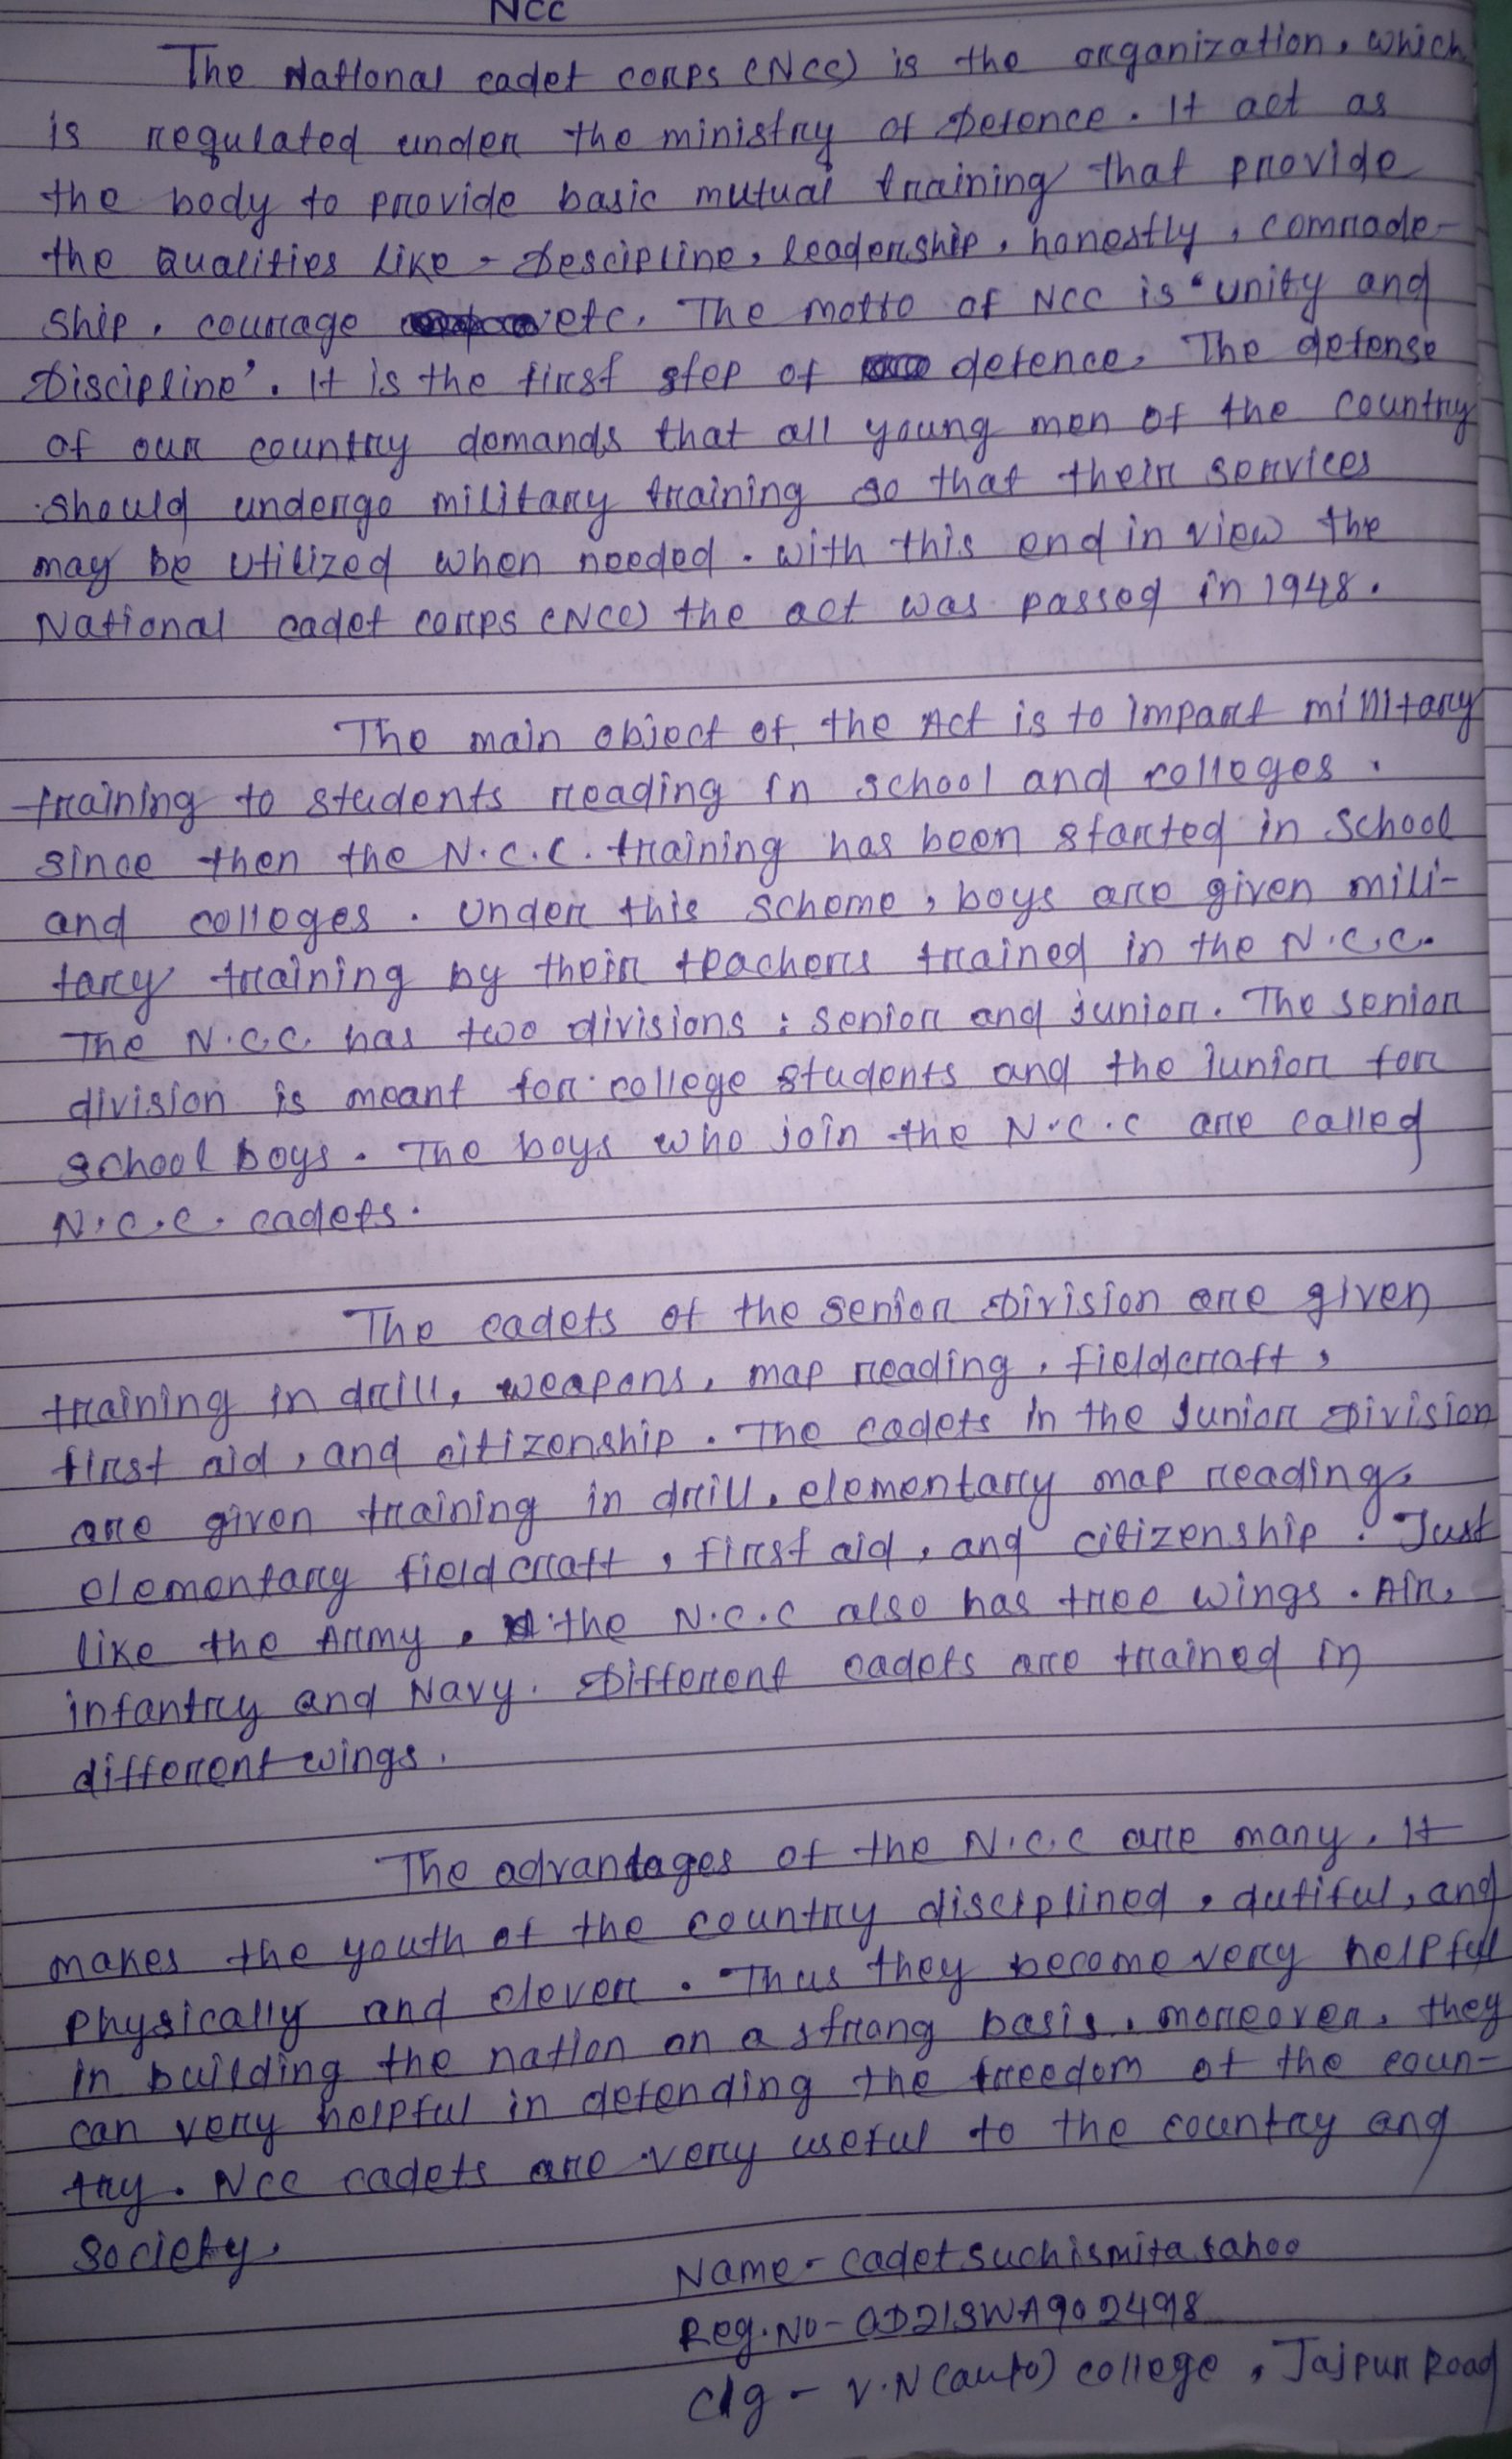 NCC
The National cadet corps (NCC) is the organization, which
is regulated under the ministry of Defence. It act as
the body to provide basic mutual training that provide
the Qualities like - Descipline, leadership, honestly, comrade-
ship, courage etc. The motto of NCC is "unity and
Discipline'. It is the first step of defence. The defense
of our country demands that all young men of the country
should undergo military training so that their services
may be utilized when needed. with this end in view the
National cadet corps (NCC) the act was passed in 1948.
The main object of the Act is to impart military
training to students reading in school and colleges.
since then the N.C.C. training has been started in school
and colleges. Under this scheme, boys are given mili-
tary training by their teachers trained in the N.C.C.
The N.C.C. has two divisions : senior and junior. The senior
division is meant for college students and the junior for
school boys. The boys who join the N.C.C are called
N.C.C. cadets.
The cadets of the senior Division are given
training in drill, weapons, map reading, fieldcraft,
first aid, and citizenship. The cadets in the Junior Division
are given training in drill, elementary map reading,
elementary fieldcraft, first aid, and citizenship. Just
like the Army, the N.C.C also has tree wings. Air,
infantry and Navy. Different cadets are trained in
different wings.
The advantages of the N.C.C are many. It
makes the youth of the country disciplined, dutiful, and
physically and clever. Thus they become very helpful
in building the nation on a strong basis. moreover, they
can very helpful in defending the freedom of the coun-
try. Ncc cadets are very useful to the country and
society.
Name - cadet suchismita sahoo
Reg.No - OD21SWA902498
Clg - V.N (auto) college, Jajpur Road